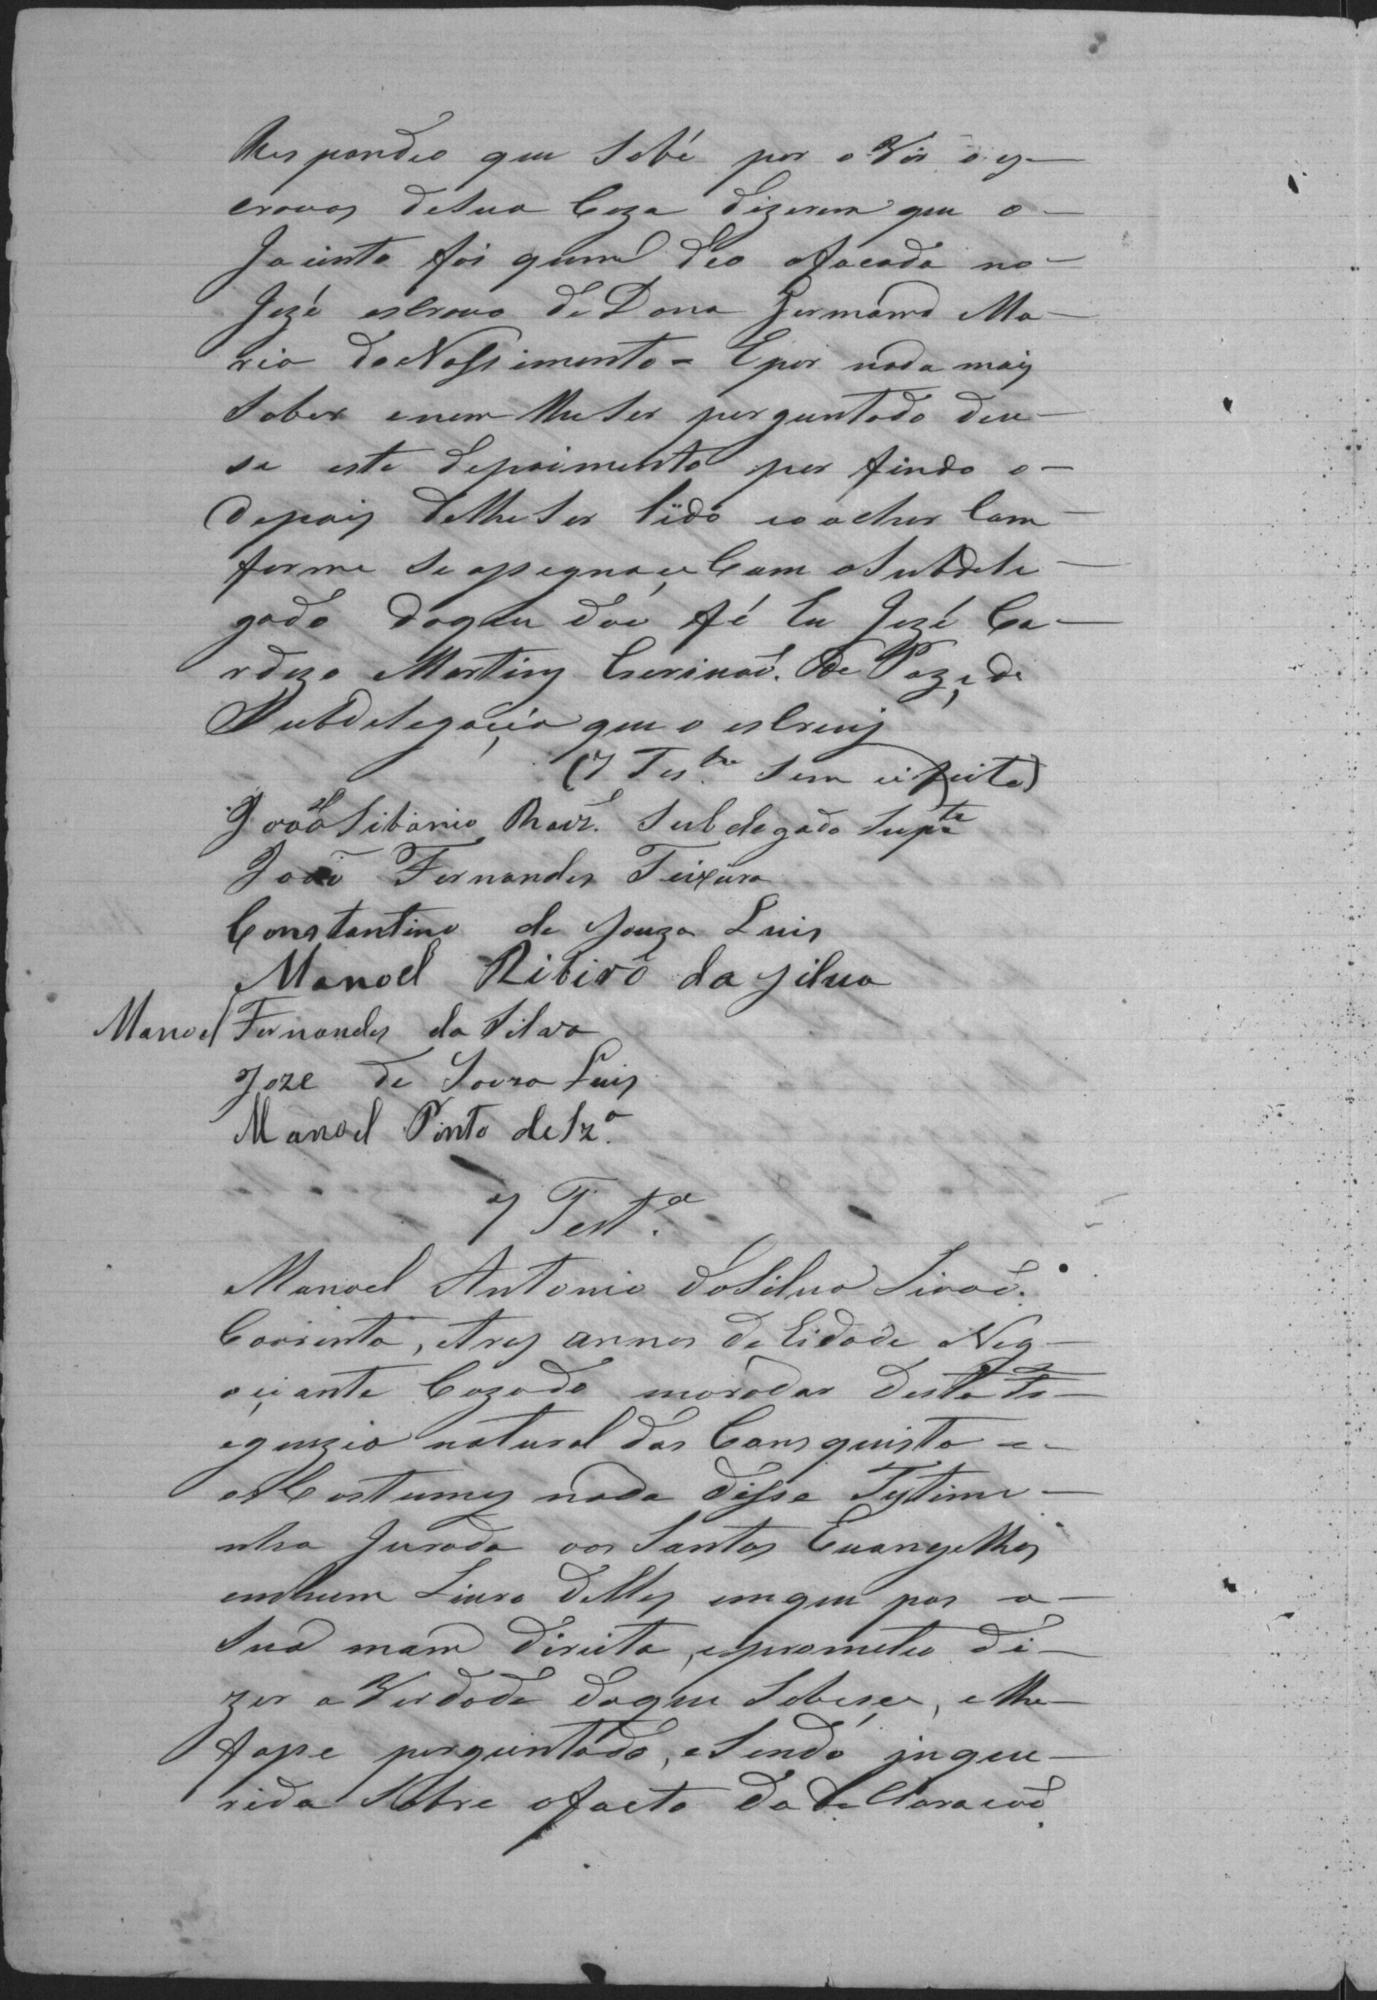 Respondeo que Sabé por o Vir o es-
cravos de Sua Caza dizerem que o-
Jacinto foi quem deo afacada no-
Jozé esCravo de Dona Germana Ma-
ria do Nassimento = E por nada mais
Saber enem lhe Ser perguntado deu-
se este depoimento por findo o-
depois de lhe Ser lido eo achar Com-
forme Se aSegna Com oSubdele-
gado doque dou fé Eu Jozé Ca-
rdozo Martins Escrivaõ de Paz, e da
Subdelegacia que o esCrevj
(7 Tes.ta Sem eifeito)
João Libanio Subdegado Sup.te
João Fernandes Teixeira
Constantino de Souza Luis
Manoel Ribirô da Silva
Manoel Fernandes da Silva
Joze de Souza Luis
Manoel Pinto de Sz.a
7 Test.a
Manoel Antonio da Silva
Coorenta, etres annos de Eidade Neg-
oçiante Cazado morador desta Fr-
eguezia natural das Conquista e-
os Costumes nada disse Testimu-
nha Jurada aos Santos Euangelhos
emhum Livro delles emque pos a-
Sua mam direita, eprometeo di-
zer a Verdade doque Sobese, elhe-
fose perguntado, eSendo inque-
rida Sobre ofacto da deClaracaõ